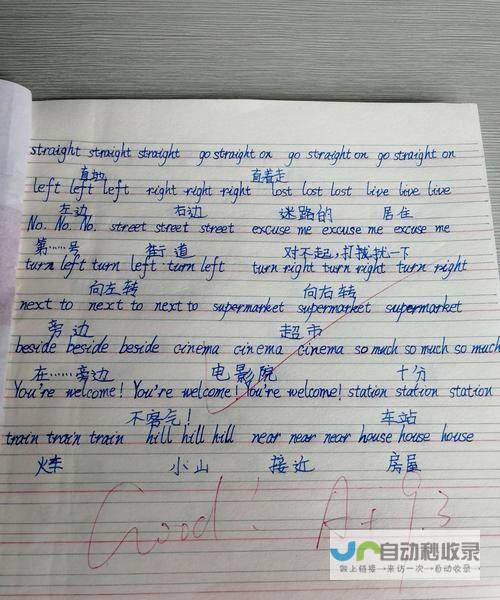 straight straight straight go straight on go straight on go straight on
直地 直着走
left left left right right right lost lost lost live live live
左边 右边 迷路的 居住
No. No. No. street street street excuse me excuse me excuse me
第……号 街道 对不起,打扰一下
turn left turn left turn left turn right turn right turn right
向左转 向右转
next to next to next to supermarket supermarket supermarket
旁边 超市
beside beside beside cinema cinema cinema so much so much so much
在……旁边 电影院 十分
You're welcome! You're welcome! You're welcome! station station station
不客气! 车站
train train train hill hill hill near near near house house house
火车 小山 接近 房屋
Good! A+ 9.3
自动秒收录
做上链接→来访一次→自动收录